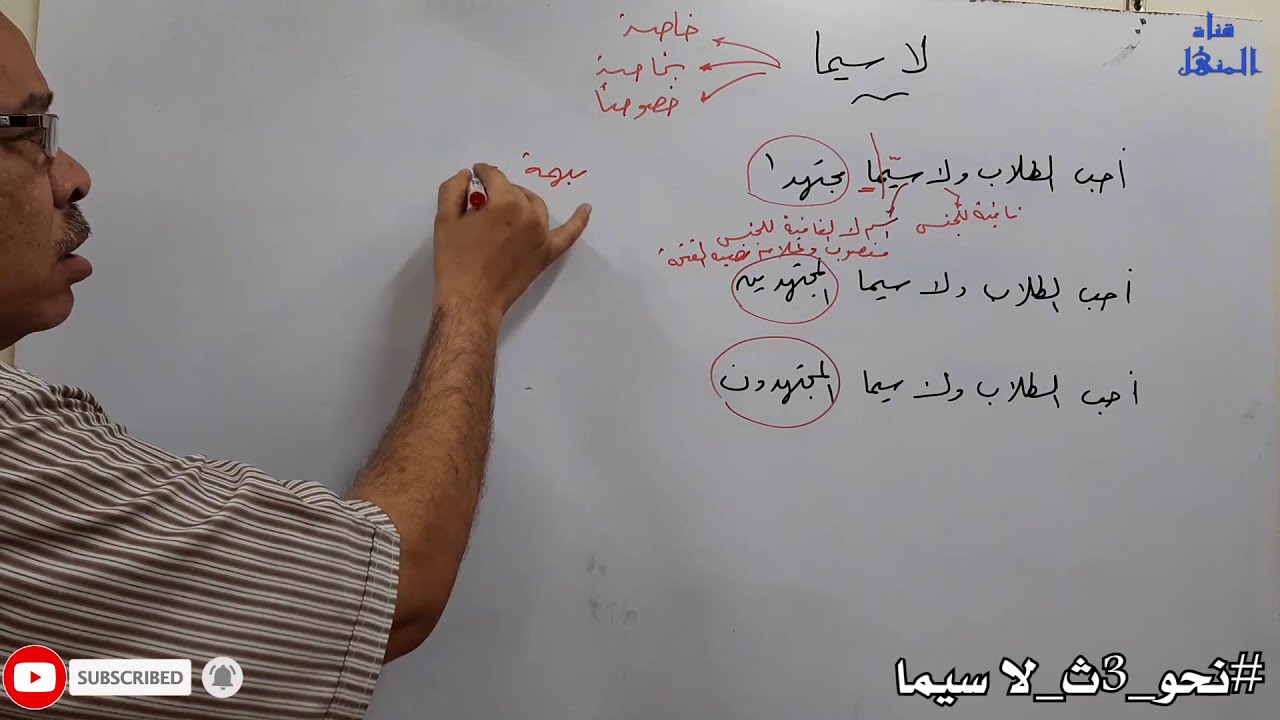 قناة
المنهل
لا سيما
خاصة
بخاصة
خصوصًا
أحب الطلاب ولا سيّما مجتهدا
نافية للجنس
اسم لا النافية للجنس
منصوب وعلامة نصبه الفتحة
أحب الطلاب ولا سيما المجتهدين
أحب الطلاب ولا سيما المجتهدون
SUBSCRIBED
#نحو_3ث_لا سيما